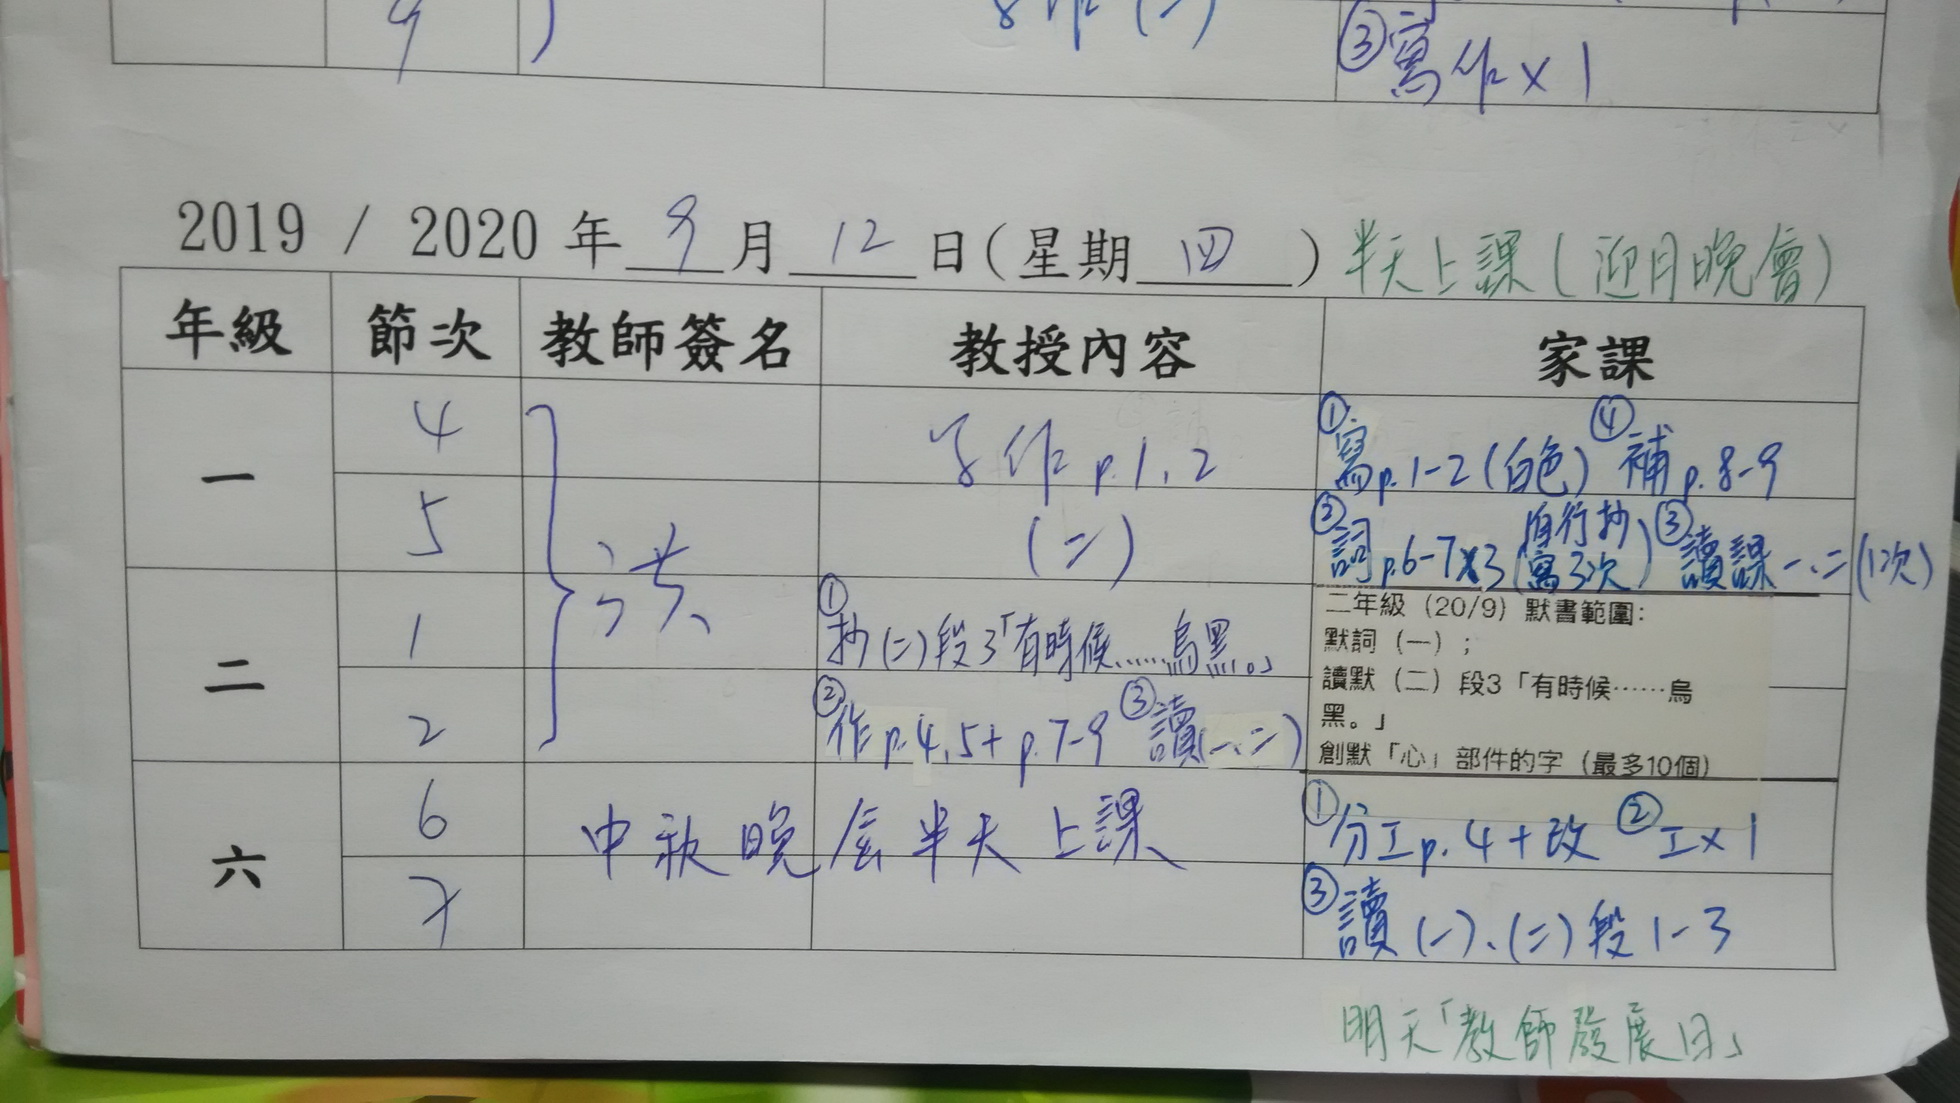 9
作(二)
③寫作×1
2019 / 2020 年 9 月 12 日(星期 四 ) 半天上課(迎月晚會)
年級 節次 教師簽名 教授內容 家課
一 4 作p.1、2 ①寫p.1-2(白色) ④補p.8-9
5 (二) ②詞p.6-7×3(自行抄寫3次) ③讀課一、二(1次)
二 1 洪 ①抄(二)段3「有時候……烏黑。」
2 ②作p.4,5+p.7-9 ③讀(一、二)
二年級 (20/9) 默書範圍:
默詞 (一) ;
讀默 (二) 段3「有時候……烏
黑。」
創默「心」部件的字 (最多10個)
六 6 中秋晚會半天上課 ①分工p.4+改 ②工×1
7 ③讀(一)、(二)段1-3
明天「教師發展日」